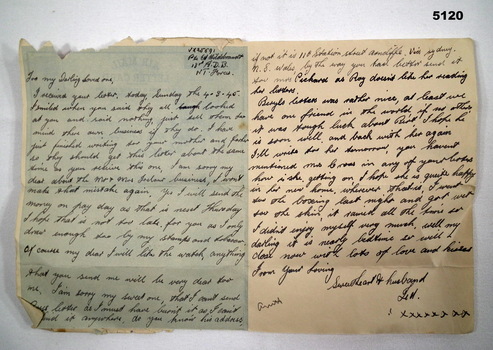 5120
Pte
11th A.D.D.
N.T. Force.
To my Darling loved one,
I received your letter, today Sunday the 4-3-45.
I smiled when you said they all laugh looked
at you and said nothing, just tell them to
mind their own business if they do. I have
just finished writing to your mother and father
so they should get this letter about the same
time as you receive this one, I am sorry my
dear about the Mrs business, I won't
make that mistake again. Yes I will send the
money on pay day as that is next Thursday
I hope that is not too late, for you as I only
drew enough to buy my stamps and tobacco.
Of course my dear I will like the watch, anything
that you send me will be very dear to
me, I am sorry my sweet one, that I can't send
letter, as I must have burnt it as I can't
find it anywhere, do you know his address
if not it is 11th Station, Via Sydney.
N.S. Wales, by the way you had better send it
to Mrs as Roy doesn't like her reading
his letters.
letter was rather nice, at least we
have one friend in the world if no other
it was tough luck about Bill I hope he
is soon well and back with his again
I'll write to her tomorrow, you haven't
mentioned Mrs in any of your letters
how is she getting on I hope she is quite happy
in her new home, wherever that is, I went
to the boxing last night and got wet
to the skin, it rained all the time so
I didn't enjoy myself very much, well my
darling it is nearly bedtime so will
close now with lots of love and kisses
From Your Loving
Sweetheart & husband
xxxxxxxx